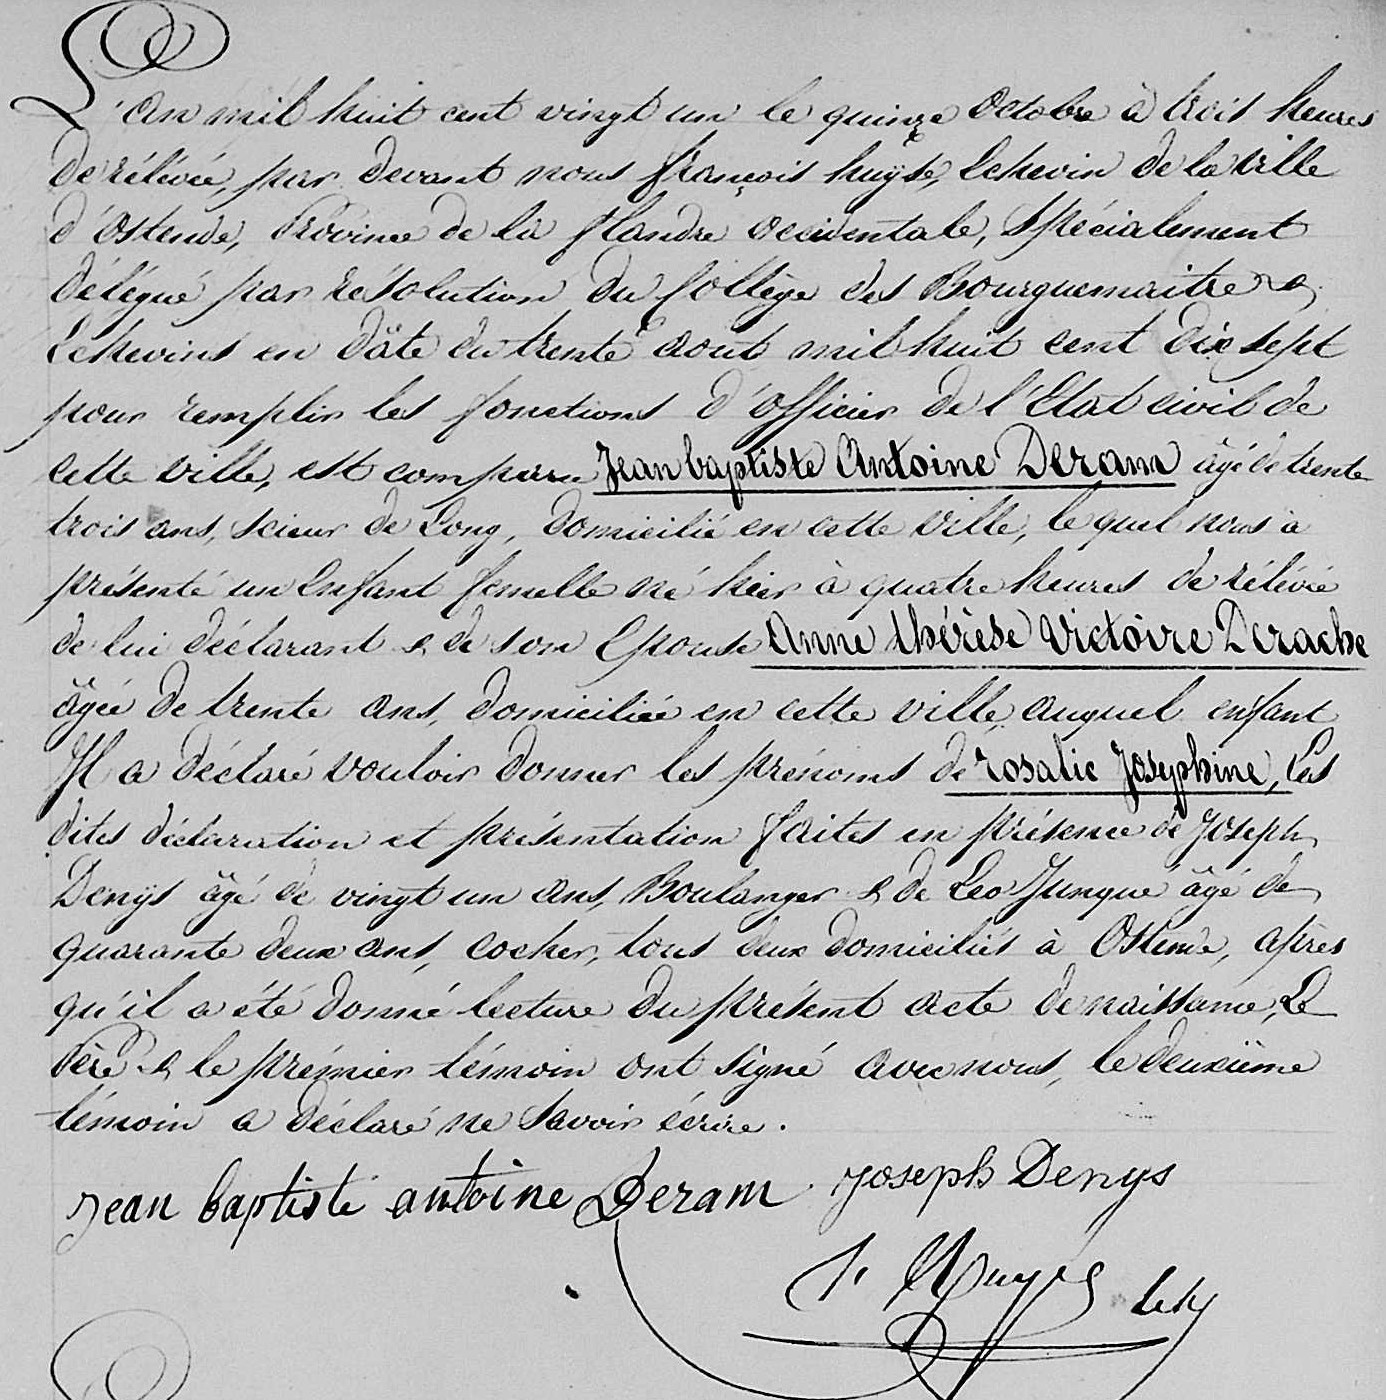 L'an mil huit cent vingt un le quinze Octobre à trois heures
de rélévée, par devant nous françois huyse, Echevin de la ville
d'Ostende, Province de la flandre occidentale, Spécialement
délégué par résolution du Collège des Bourguemaitre &
Echevins en dâte du trente aout mil huit cent dix sept
pour remplir les fonctions d'officier de l'Etat civil de
cette ville, est comparu Jean baptiste Antoine Deram âgé de trente
trois ans, scieur de Long, domicilié en cette ville, le quel nous a
présenté un Enfant femelle né hier à quatre heures de rélévée
de lui déclarant & de son Epouse Anne thérèse Victoire Derache
âgée de trente ans, domiciliée en cette ville, auquel enfant
Il a déclaré vouloir donner les prénoms de rosalie Josephine, Les
dites déclaration et présentation faites en présence de Joseph
Denys âgé de vingt un ans, Boulanger & de Leo Junqué âgé de
quarante deux ans, cocher, tous deux domiciliés à Ostende, après
qu'il a été donné lecture du présent acte de naissance, Le
Père & le prémier témoin ont signé avec nous, le deuxième
témoin a déclaré ne savoir écrire.
Jean baptiste antoine Deram Joseph Denys